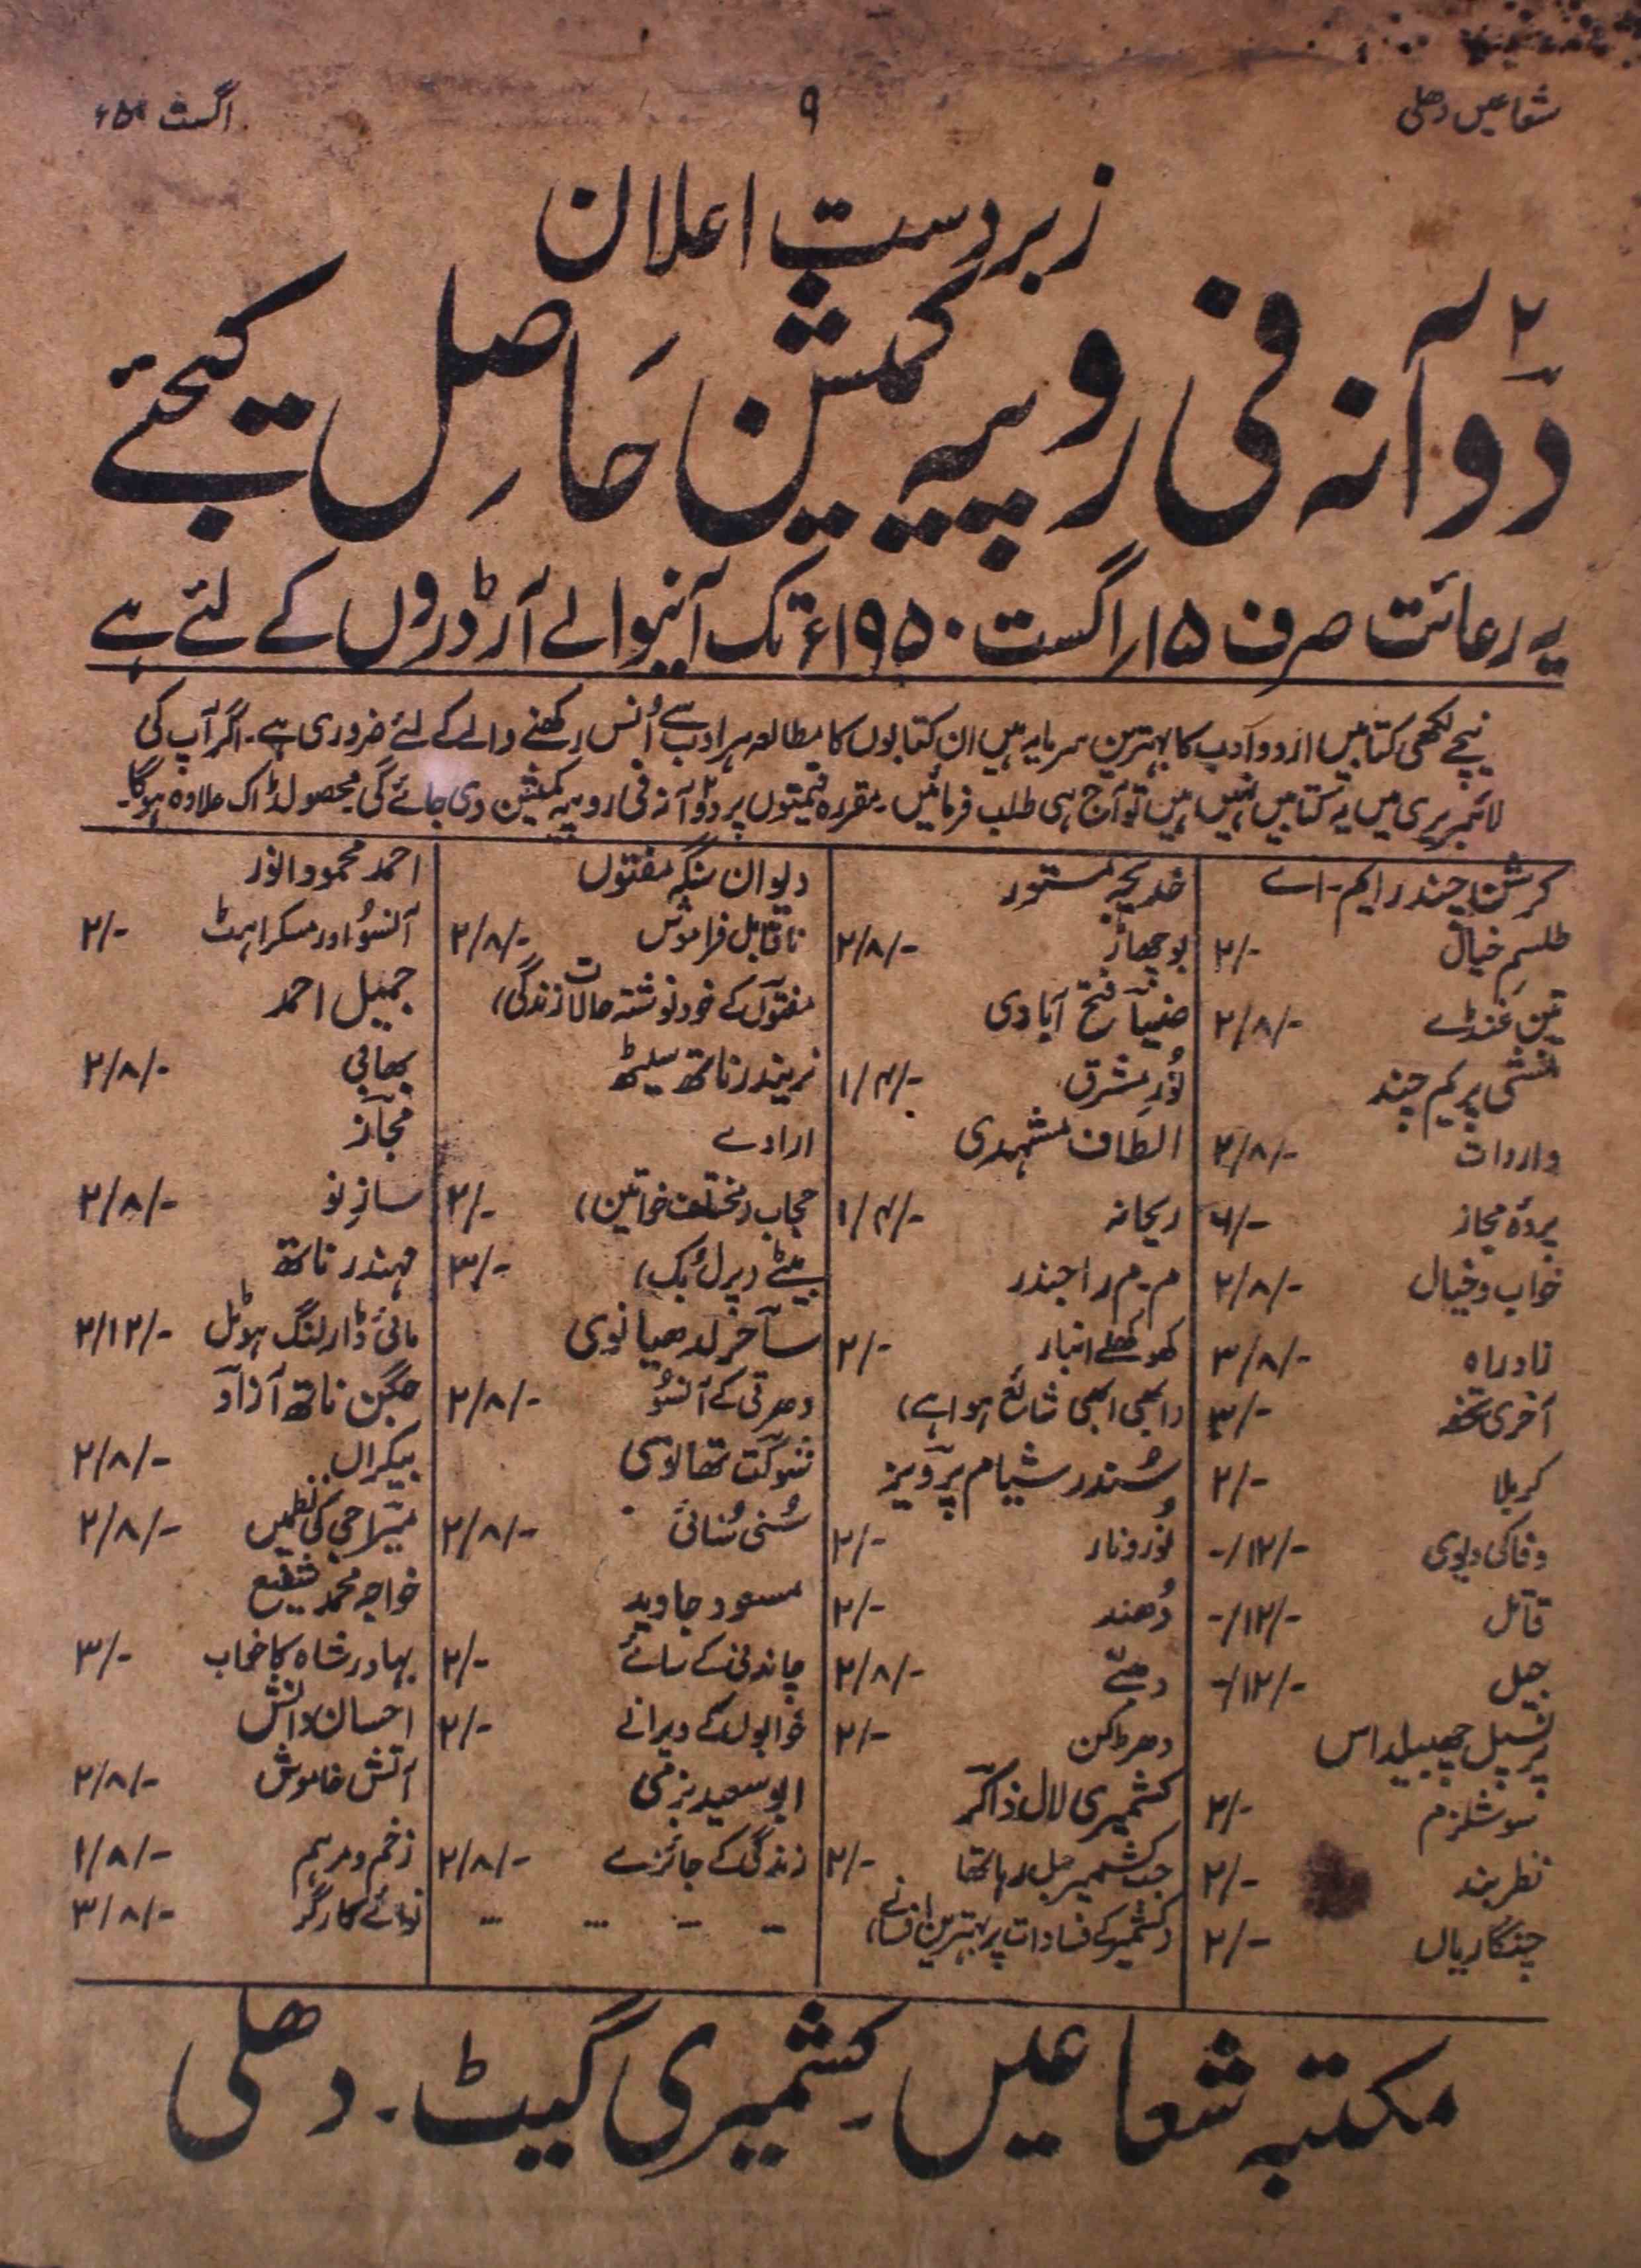 شعاعیں دھلی
۹
اگست ۵۰ء
زبردست اعلان
۲
دوآنہ فی روپیہ کمیشن حاصل کیجئے
یہ رعائت صرف ۱۵ اراگست ۱۹۵۰ء تک آنیوالے آرڈروں کے لئے ہے
نیچے لکھی کتابیں اردو ادب کا بہترین سرمایہ ہیں ان کتابوں کا مطالعہ ہر ادب سے اُنس رکھنے والے کے لئے ضروری ہے۔ اگر آپ کی
لائبریری میں یہ کتابیں نہیں ہیں تو آج ہی طلب فرمائیں۔ مقررہ قیمتوں پر دو آنہ فی روپیہ کمیشن دی جائے گی محصولڈاک علاوہ ہوگا۔
کرشن چندر ایم۔اے
طلسمِ خیال ۲/-
تین غنڈے ۲/۸/-
منشی پریم چند
واردات ۲/۸/-
پردۂ مجاز ۶/-
خواب و خیال ۲/۸/-
زادراہ ۳/۸/-
آخری تحفہ ۳/-
کربلا ۲/-
وفا کی دیوی -/۱۲/-
قاتل -/۱۲/-
جیل -/۱۲/-
پرنسپل چھبیلداس
سوشلزم ۲/-
نظر بند ۲/-
چنگاریاں ۲/-
خدیجہ مستور
بوچھاڑ ۲/۸/-
ضیاؔ فتح آبادی
نُورِ مشرق ۱/۴/-
الطاف مشہدی
ریحانہ ۱/۴/-
م۔م راجندر
کھوکھلے انبار ۲/-
(ابھی ابھی شائع ہوا ہے)
سُندر شیام پرویز
نُور و نار ۲/-
دُھند ۲/-
دھبّے ۲/۸/-
دھڑکن ۲/-
کشمیری لال ذاکرؔ
جب کشمیر جل رہا تھا ۲/-
(کشمیر کے فسادات پر بہترین افسانے)
دیوان سنگھ مفتوں
ناقابل فراموش ۲/۸/-
مفتوں کے خود نوشتہ حالات زندگی)
نریندر ناتھ سیٹھ
ارادے
حجاب (مختلف خواتین) ۲/-
بیٹے (پرل بک) ۳/-
ساحرؔ لدھیانوی
دھرتی کے آنسُو ۲/۸/-
شوکت تھانوی
سُنی سُنائی ۲/۸/-
مسعود جاوید
چاندنی کے سائے ۲/-
خوابوں کے ویرانے ۲/-
ابو سعید بزمی
زندگی کے جائزے ۲/۸/-
احمد محمود انور
آنسُو اور مسکراہٹ ۲/-
جمیل احمد
بھابی ۲/۸/-
مجازؔ
سازِ نو ۲/۸/-
مہندر ناتھ
مائی ڈارلنگ ہوٹل ۲/۱۲/-
جگن ناتھ آزاد
بیکراں ۲/۸/-
میراجی کی نظمیں ۲/۸/-
خواجہ محمد شفیع
بہادر شاہ کا خواب ۳/-
احسان دانش
آتش خاموش ۲/۸/-
زخم و مرہم ۱/۸/-
نوائے کارگر ۳/۸/-
مکتبہ شعاعیں۔ کشمیری گیٹ۔ دھلی